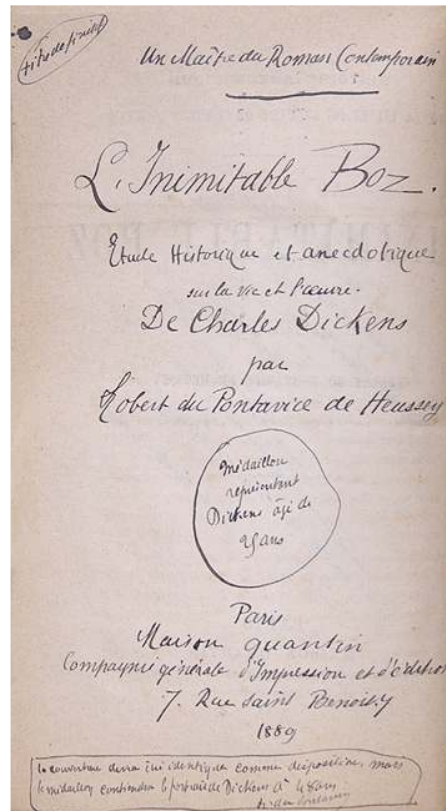 titre définitif
Un Maître du Roman Contemporain
L'Inimitable Boz.
Etude Historique et anecdotique
sur la vie et l'œuvre.
De Charles Dickens
par
Robert du Pontavice de Heussey
Médaillon
représentant
Dickens âgé de
25 ans
Paris
Maison quantin
Compagnie générale d'Impression et d'édition
7. Rue Saint Benoist 7
1889
la couverture devra être identique comme disposition, mais
le médaillon contiendra le portrait de Dickens à 48 ans